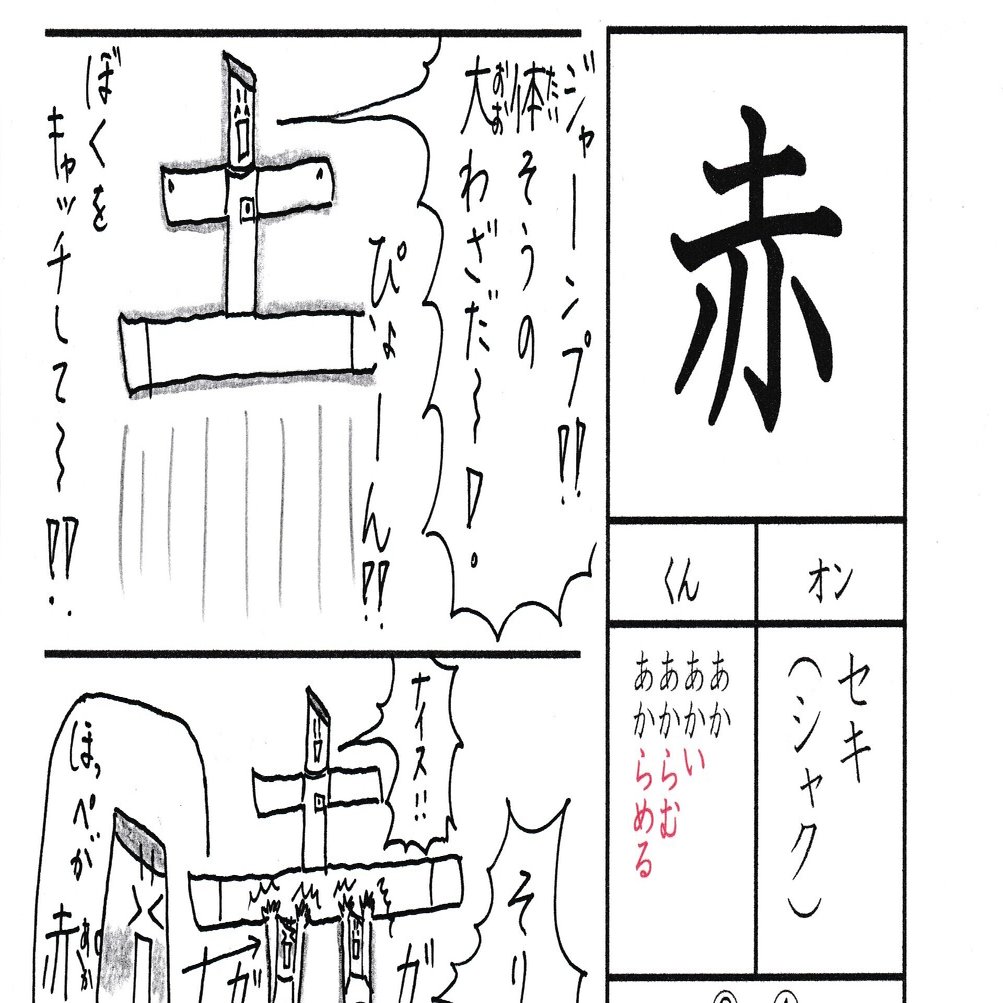 赤
オン
くん
セキ
（シャク）
あか
あかい
あからむ
あからめる
ジャーンプ!!
体そうの
たい
大わざだ～!
おお
ぴょーん!!
ぼくを
キャッチして～!!
ナイス!!
そり
ガ
ガ
ほっぺが
赤
あか